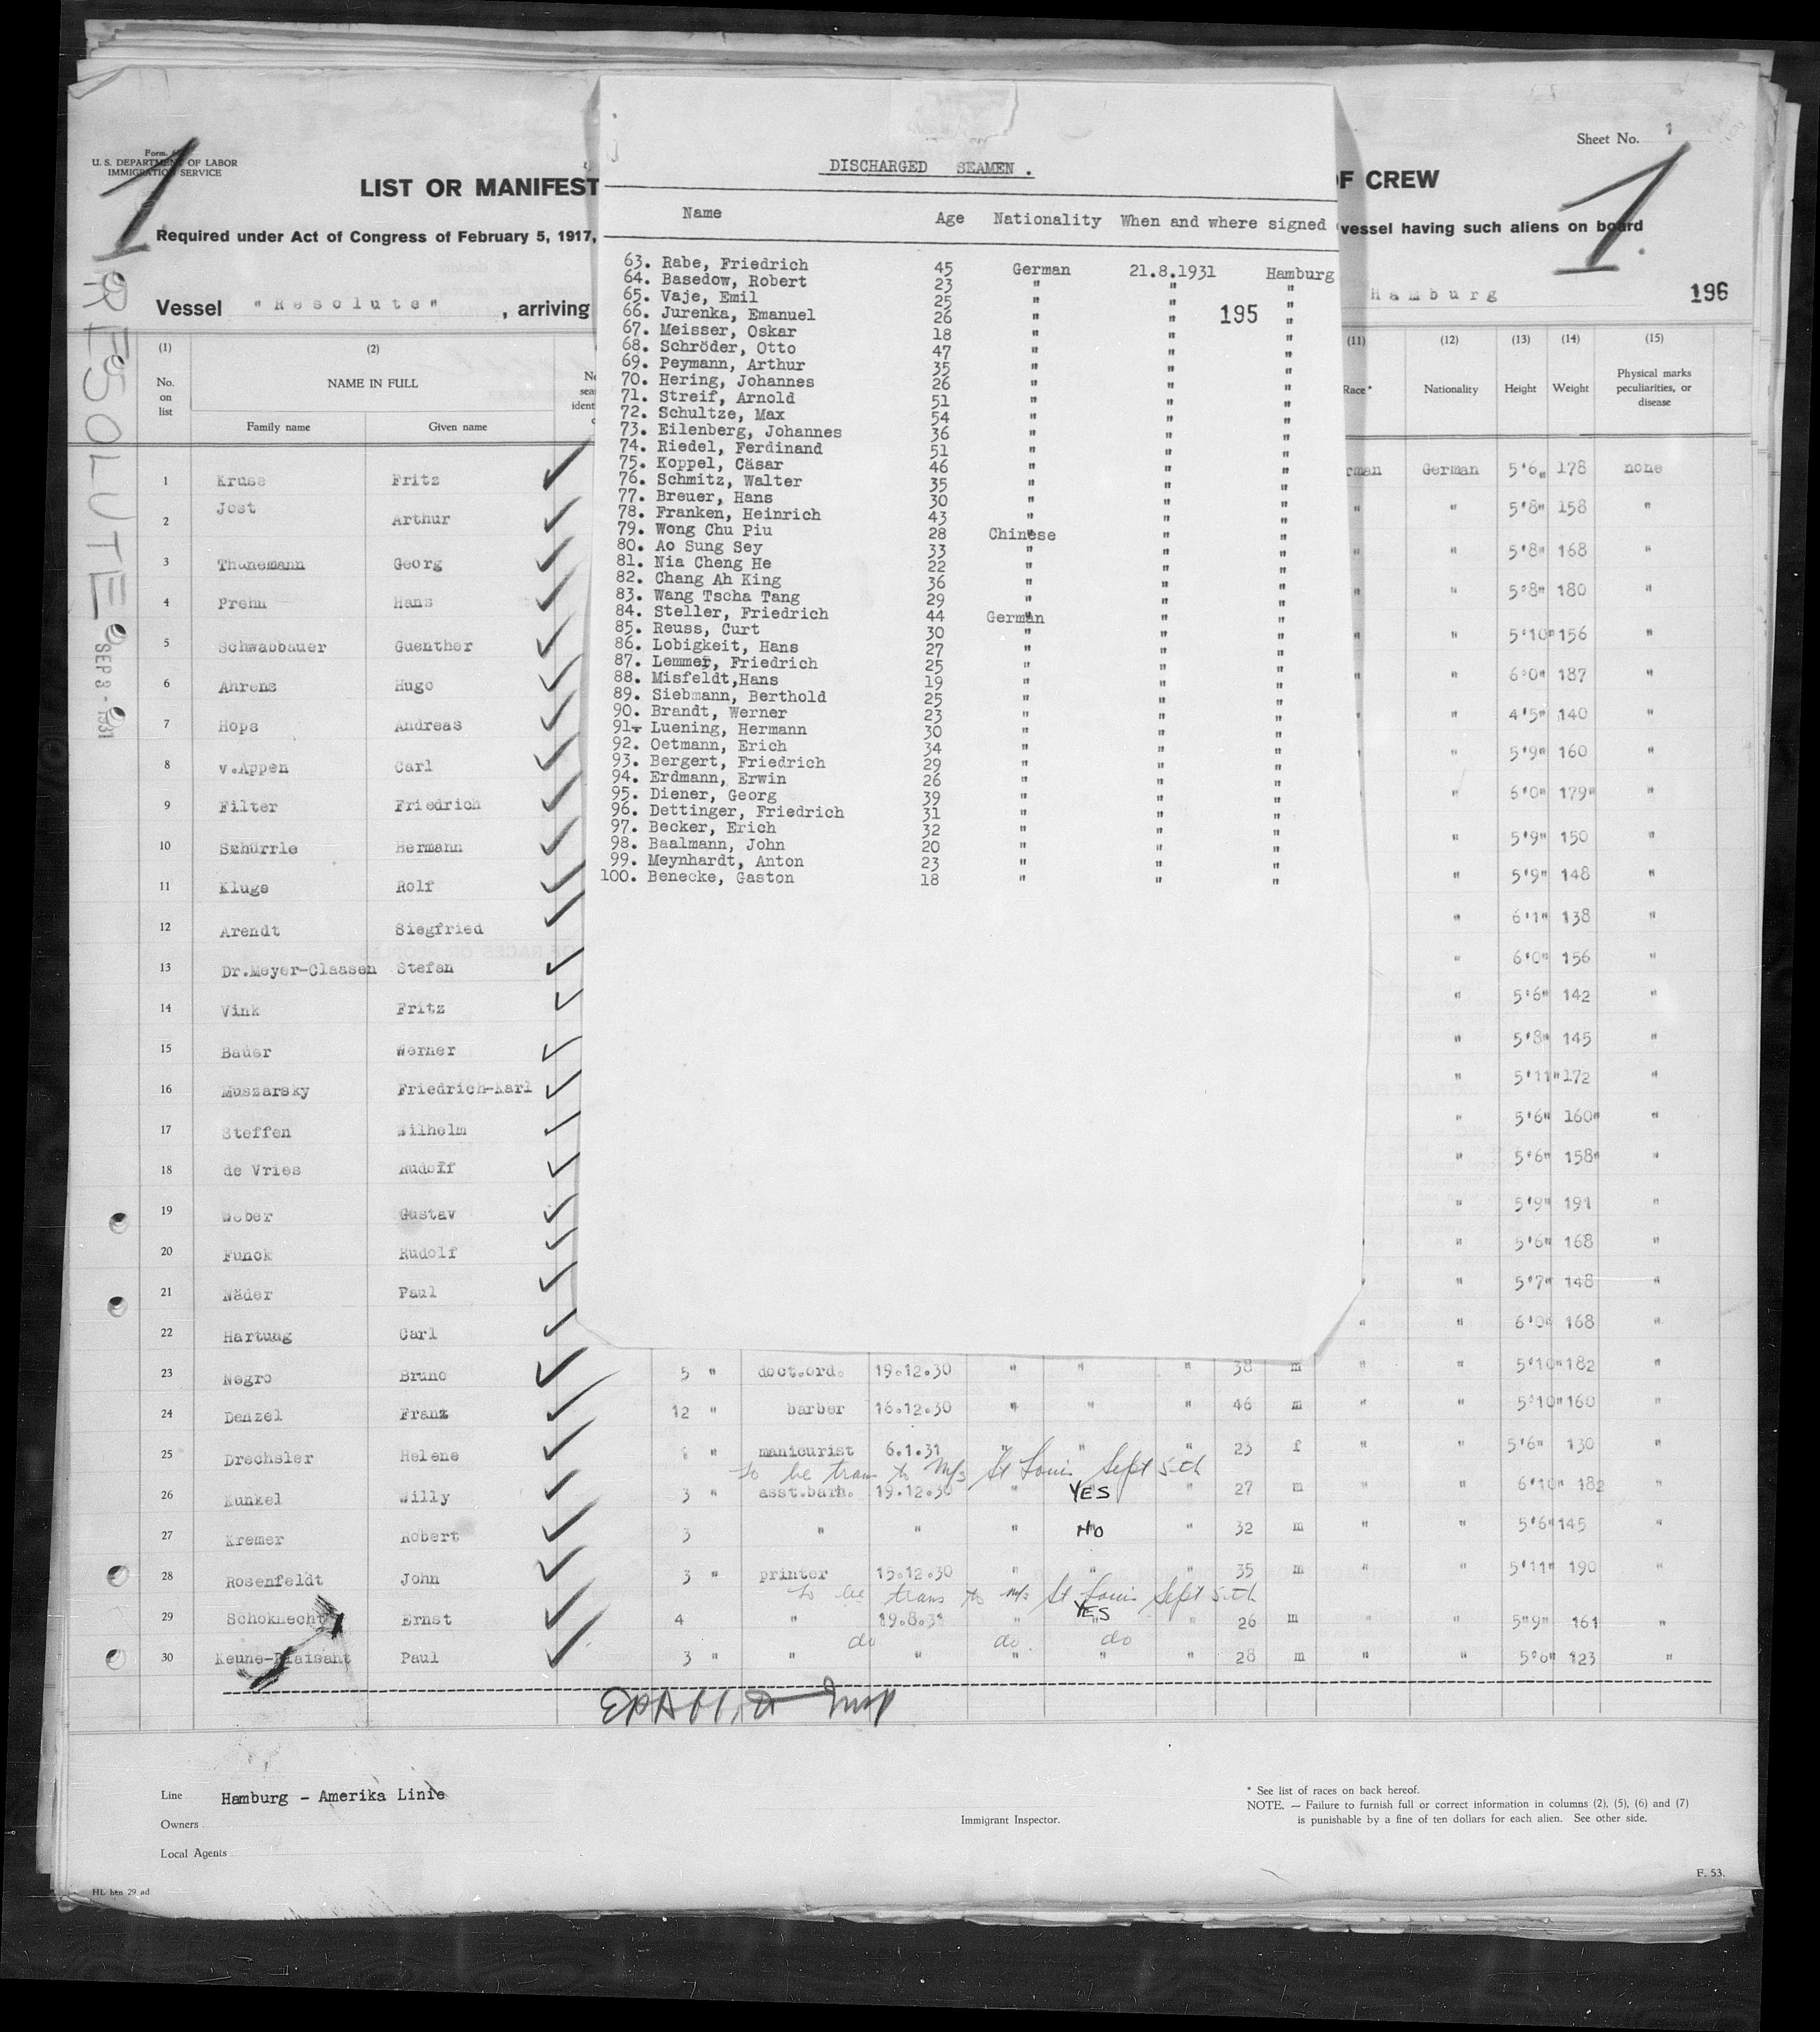 Sheet No. 1
U. S. DEPARTMENT OF LABOR
IMMIGRATION SERVICE
1
1.
LIST OR MANIFEST
OF CREW
Required under Act of Congress of February 5, 1917,
vessel having such aliens on board
Vessel "Resolute", arriving
Hamburg
196
RESOLUTE
SEP 3 - 1931
DISCHARGED SEAMEN.
Name Age Nationality When and where signed
63. Rabe, Friedrich 45 German 21.8.1931 Hamburg
64. Basedow, Robert 23 " " "
65. Vaje, Emil 25 " " "
66. Jurenka, Emanuel 26 " " 195 "
67. Meisser, Oskar 18 " " "
68. Schröder, Otto 47 " " "
69. Peymann, Arthur 35 " " "
70. Hering, Johannes 26 " " "
71. Streif, Arnold 51 " " "
72. Schultze, Max 54 " " "
73. Eilenberg, Johannes 36 " " "
74. Riedel, Ferdinand 51 " " "
75. Koppel, Cäsar 46 " " "
76. Schmitz, Walter 35 " " "
77. Breuer, Hans 30 " " "
78. Franken, Heinrich 43 " " "
79. Wong Chu Piu 28 Chinese " "
80. Ao Sung Sey 33 " " "
81. Nia Cheng He 22 " " "
82. Chang Ah King 36 " " "
83. Wang Tscha Tang 29 " " "
84. Steller, Friedrich 44 German " "
85. Reuss, Curt 30 " " "
86. Lobigkeit, Hans 27 " " "
87. Lemmer, Friedrich 25 " " "
88. Misfeldt,Hans 19 " " "
89. Siebmann, Berthold 25 " " "
90. Brandt, Werner 23 " " "
91. Luening, Hermann 30 " " "
92. Oetmann, Erich 34 " " "
93. Bergert, Friedrich 29 " " "
94. Erdmann, Erwin 26 " " "
95. Diener, Georg 39 " " "
96. Dettinger, Friedrich 31 " " "
97. Becker, Erich 32 " " "
98. Baalmann, John 20 " " "
99. Meynhardt, Anton 23 " " "
100. Benecke, Gaston 18 " " "
(1) (2) (11) (12) (13) (14) (15)
No. on list
NAME IN FULL
Family name Given name
Race* Nationality Height Weight Physical marks peculiarities, or disease
1 Kruse Fritz German 5'6" 178 none
2 Jost Arthur " " 5'8" 158 "
3 Thunemann Georg " " 5'8" 168 "
4 Prehn Hans " " 5'8" 180 "
5 Schwabbauer Guenther " " 5'10" 156 "
6 Ahrens Hugo " " 6'0" 187 "
7 Hops Andreas " " 4'5" 140 "
8 v.Appen Carl " " 5'9" 160 "
9 Filter Friedrich " 6'0" 179" "
10 Schürrle Hermann " 5'9" 150 "
11 Kluge Rolf " 5'9" 148 "
12 Arendt Siegfried " 6'1" 138 "
13 Dr.Meyer-Claasen Stefan " 6'0" 156 "
14 Vink Fritz " 5'6" 142 "
15 Bauer Werner " 5'8" 145 "
16 Muszarsky Friedrich-Karl " 5'11" 172 "
17 Steffen Wilhelm " 5'6" 160" "
18 de Vries Rudolf " 5'6" 158" "
19 Weber Gustav " 5'9" 191 "
20 Funck Rudolf " 5'6" 168 "
21 Näder Paul " 5'7" 148 "
22 Hartung Carl " " 6'0" 168 "
23 Negro Bruno 5 " doct.ord. 19.12.30 " " " 38 m " " 5'10" 182 "
24 Denzel Franz 12 " barber 16.12.30 " " " 46 m " " 5'10" 160 "
25 Drechsler Helene " manicurist 6.1.31 " " " 23 f " " 5'6" 130 "
To be trans to M/s St Louis Sept 5th
26 Kunkel Willy 3 " asst.barb. 19.12.30 " YES " 27 m " " 6'10" 182 "
27 Kremer Robert 3 " " " NO " 32 m " " 5'6" 145 "
28 Rosenfeldt John 3 " printer 15.12.30 " " " 35 m " " 5'11" 190 "
To be trans to M/s St Louis Sept 5th
29 Schoknecht Ernst 4 " 19.8.31 " YES " 26 m " " 5"9" 161 "
do do do
30 Keune-Plaisant Paul 3 " " " " " " 28 m " " 5'6" 123 "
Line Hamburg - Amerika Linie
Owners
Local Agents
Immigrant Inspector.
* See list of races on back hereof.
NOTE. — Failure to furnish full or correct information in columns (2), (5), (6) and (7)
is punishable by a fine of ten dollars for each alien. See other side.
F. 53.